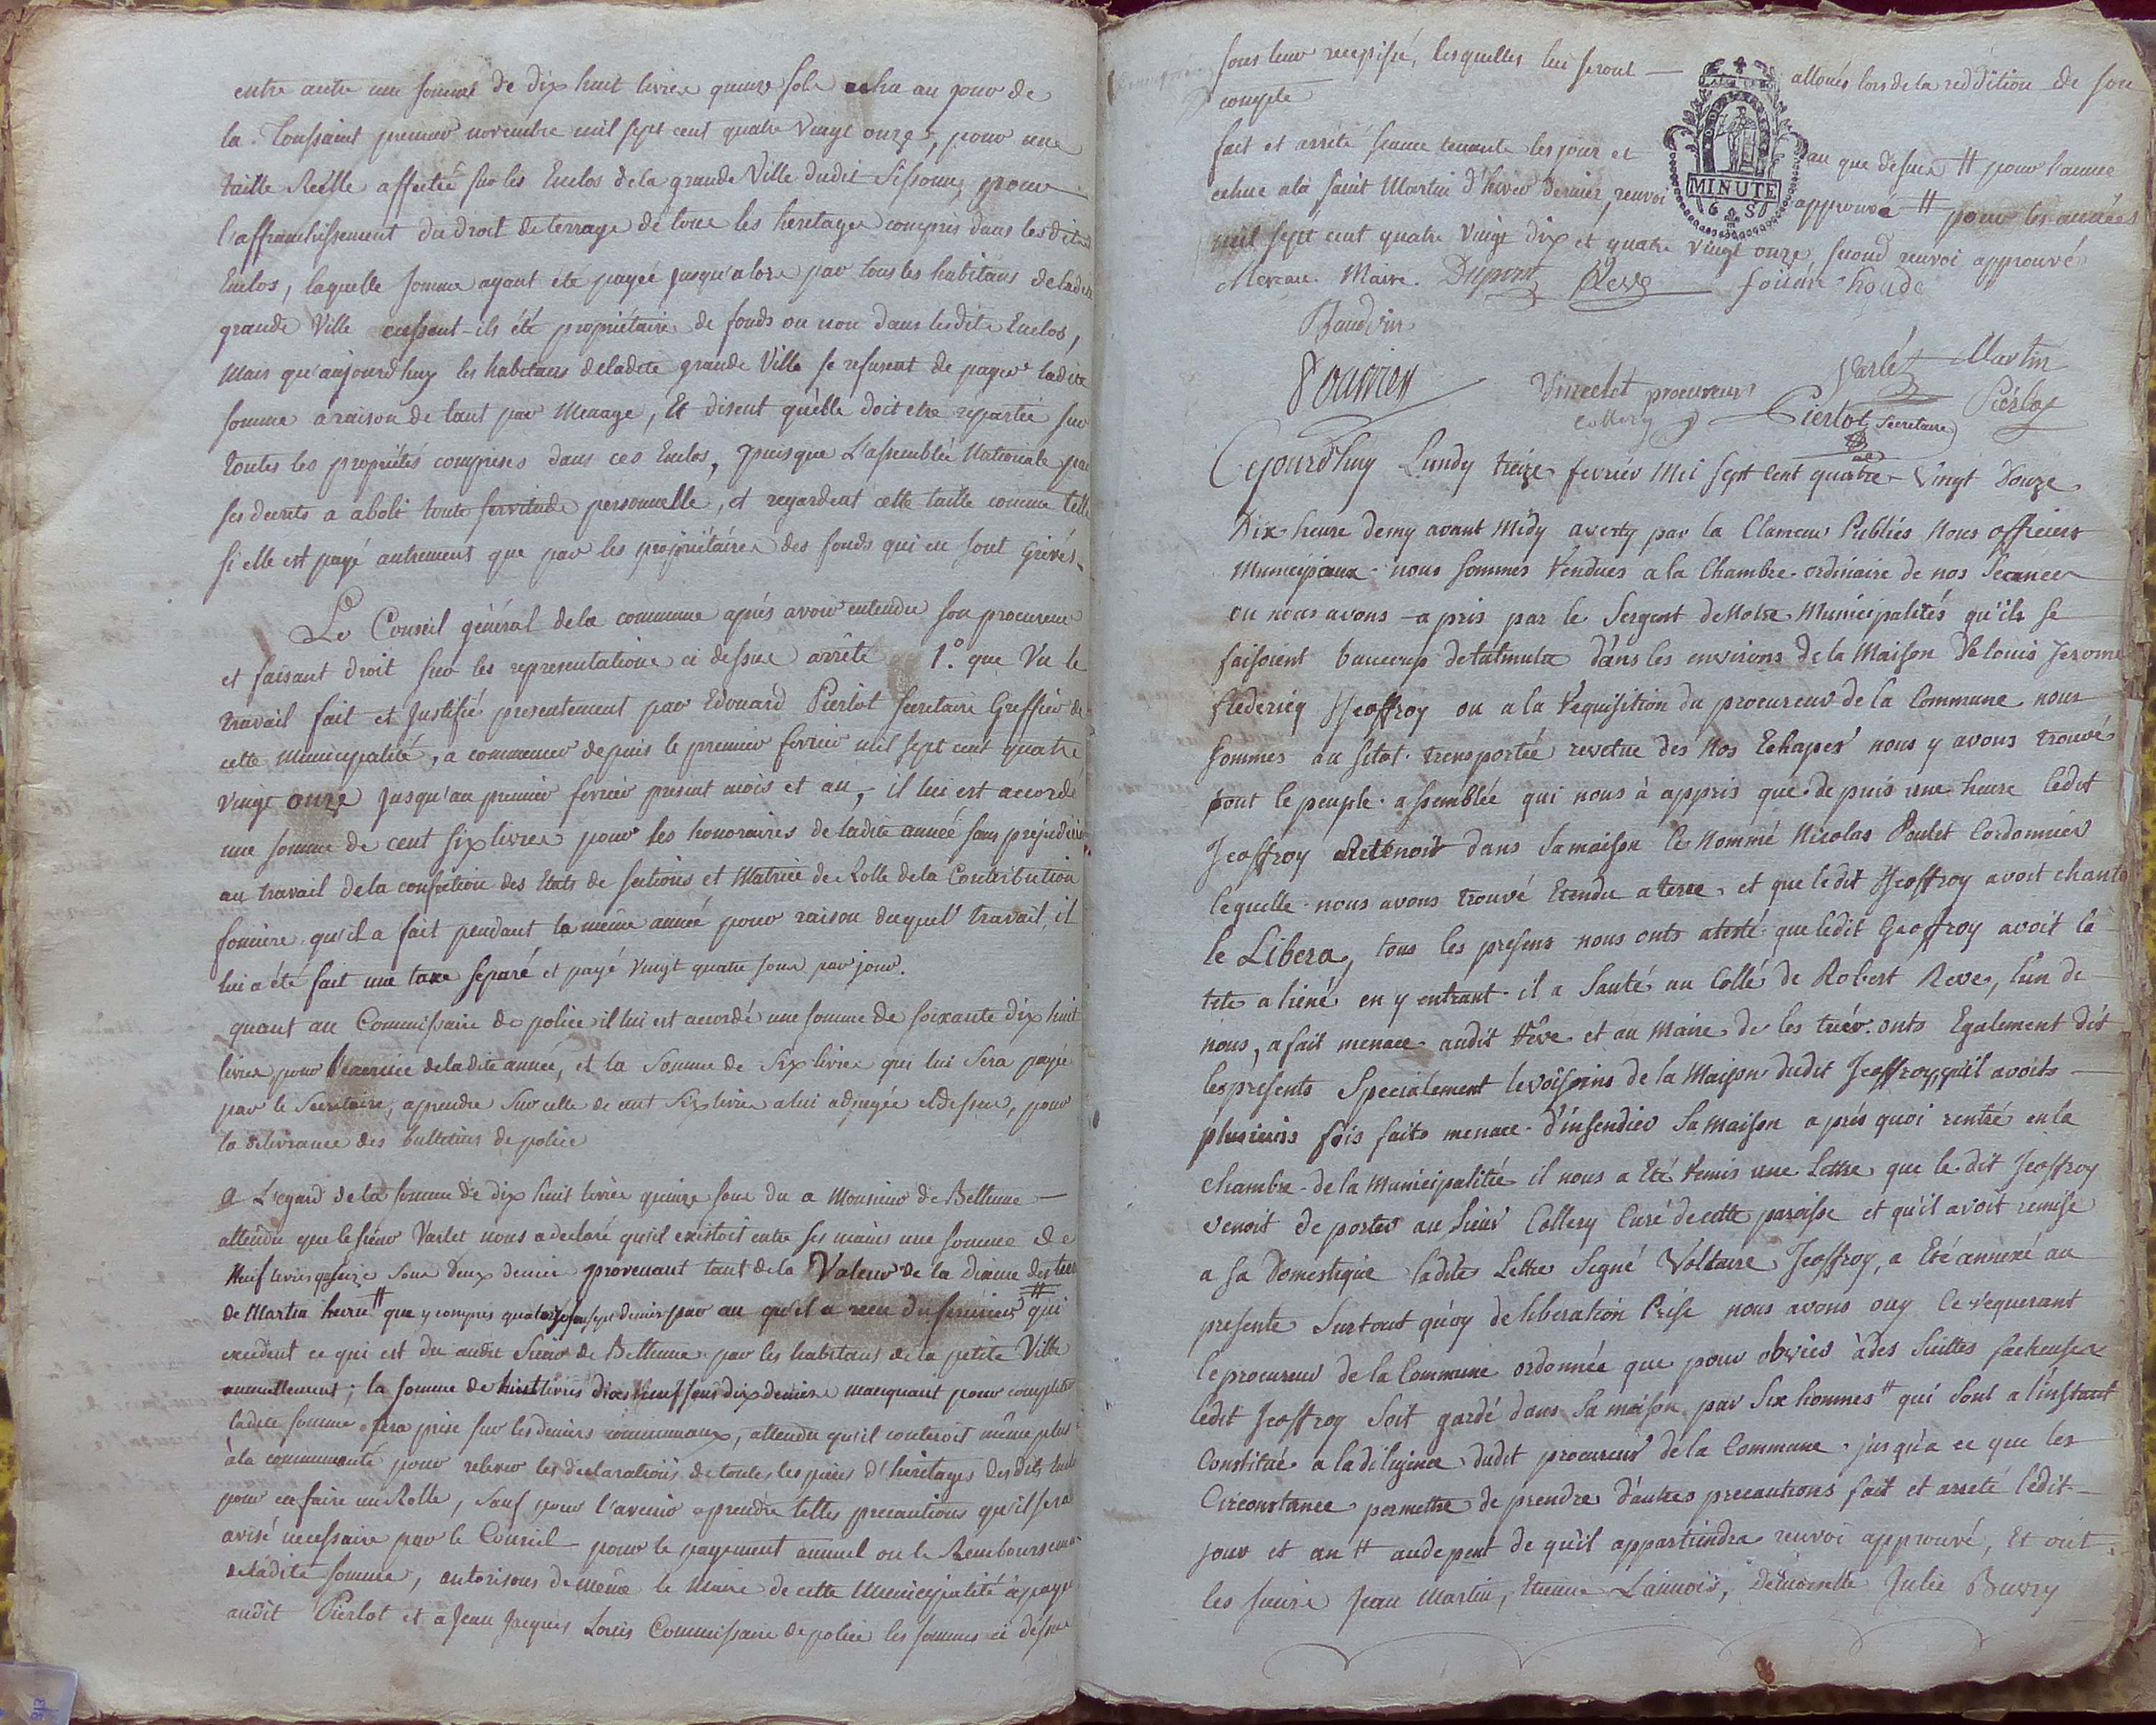 entre autre une somme de dix huit livres quinze sols echu au jour de
la Toussaint premier novembre mil sept cent quatre vingt onze, pour une
taille Réelle affectée sur les Enclos de la grande Ville dudit Sissonne, pour
l'affranchissement du droit de terrage de tous les heritages compris dans lesdits
Enclos, laquelle somme ayant été payée jusqu'alors par tous les habitans de ladite
grande Ville eussent-ils été propriétaires de fonds ou non dans lesdits Enclos,
Mais qu'aujourd'huy les habitans deladite grande Ville se refusent de payer ladite
somme a raison de tant par Menage, Et disent qu'elle doit etre repartie sur
toutes les propriétés comprises dans ces Enclos, puisque L'assemblée Nationale par
ses decrets a aboli toute servitude personnelle, et regardent cette taille comme telle
si elle est payé autrement que par les propriétaires des fonds qui en sont Grévés.
Le Conseil général dela commune aprés avoir entendu son procureur
et faisant droit sur les representations ci dessus arrête 1.° que Vu le
travail fait et Justifié presentement par Edouard Pierlot secretaire Greffier de
cette Municipalité, a commencer depuis le premier fevrier mil sept cent quatre
vingt onze Jusqu'au premier fevrier present mois et an, il lui est accordé
une somme de cent six livres pour les honoraires de ladite année sans prejudice
au travail dela confection des Etats de sections et Matrice de Rolle dela Contribution
fonciere qu'il a fait pendant la même année pour raison duquel travail, il
lui a été fait une taxe separé et payé vingt quatre sous par jour.
quant au Commissaire de police il lui est accordé une somme de soixante dix huit
livres pour l'exercice deladite année, et la Somme de Six livres qui lui sera payée
par le Secretaire, aprendre sur celle de cent six livres a lui adjugée cidessus, pour
la delivrance des bulletins de police
a L'egard de la somme de dix huit livres quinze sous du a Monsieur de Bethune
attendu que le sieur Varlet nous a declaré qu'il existoit entre ses mains une somme de
Neuf livres quinze sous deux denier provenant tant de la Valeur de la Dixme des terres
de Martin heurie # que y compris quatorze sous sept denier par an qu'il a recu du fermier # qui
excedent ce qui est du audit Sieur de Bethune par les habitans de la petite Ville
annuellement; la somme de huit livres dix neuf sous dix deniers manquant pour completer
ladite somme sera prise sur les deniers communaux, attendu qu'il couteroit même plus
à la communauté pour relever les declarations de toutes les pieces d'héritages desdits Enclos
pour en faire un Rolle, Sauf pour l'avenir aprendre telles precautions qu'il sera
avisé necessaire par le Conseil pour le payement annuel ou le Remboursement
deladite somme, autorisons de même le Maire de cette Municipalité à payer
audit Pierlot et a Jean Jacques Louis Commissaire de police les sommes ci dessus
sous leur recepissé, lesquelles lui seront allouées lors de la reddition de son
compte
MINUTE
6 S
fait et arrêté seance tenante les jour et an que dessus # pour l'année
echue a la Saint Martin d'hiver dernier, renvoi approuvé # pour les années
mil sept cent quatre vingt dix et quatre vingt onze, second renvoi approuvé
Mereau. Maire. Dupont Reve foüan houde
Baudoin
Pourrier Vincelet procureur Varlet Martin
Collery Pierlot Secretaire Pierlot
Cejourd'huy Lundy treize fevrier Mil Sept Cent quatre-Vingt Douze
Dix heure demy avant Midy averty par la Clameur Publies Nous officiers
Municipaux nous sommes Rendues a la Chambre ordinaire de nos Seances
ou nous avons apris par le Sergent de Notre Municipalités qu'ils se
faisoient baucoup detutmulte dans les environs de la Maison de louis Jerome
frederiq Jeoffroy ou a la Requisition du procureur de la Commune nous
sommes au sitot transportée revetue des Nos Echapes nous y avons trouvé
tout le peuple assemblée qui nous à appris que depuis une heure ledit
Jeoffroy Retenoit dans sa maison le Nommé Nicolas Poulet Cordonnier
lequelle nous avons trouvé Etendu a terre, et que ledit Jeoffroy avoit chanté
le Libera, tous les presens nous onts atesté que ledit Geoffroy avoit la
tete a liené en y entrant il a Sauté au Collé de Robert Reve, l'un de
nous, a fait menace audit Rêve et au Maire de les tuér. onts Egalement dit
les presents Specialement levoisoins de la Maison dudit Jeoffroy, qu'il avoits
plusieurs fois faits menace d'insendier Sa maison aprés quoi rentré en la
chambre de la Municipalitée il nous a Eté Remis une Lettre que le dit Jeoffroy
venoit de porter au Sieur Collery Curé de cette paroisse et qu'il avoit remise
a sa Domestique ladite Lettre Signé Voltaire Jeoffroy, a Eté annexé au
presente Surtout quóy deliberation Prise nous avons ouy le requerant
le procureur de la Commune ordonnée que pour obvier à des Suittes facheuses
ledit Jeoffroy Soit gardé dans Sa maison par Six hommes # qui sont a l'instant
Constitué a la diligence dudit procureur de la Commune jusqu'a ce que les
Circonstance permettre de prendre d'autres precautions fait et arreté ledit
jour et an # audepent de qu'il appartiendra renvoi approuvé, Et ont
les sieurs Jean Martin, Etienne Lainnois, Demoiselle Julie Buvry